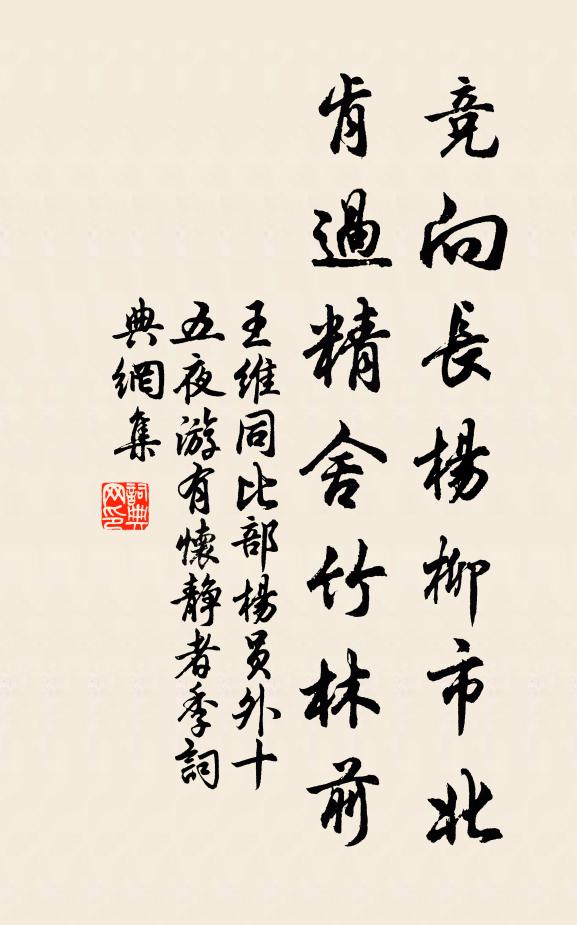 竞向長楊柳市北
肯過精舍竹林前
王維同比部楊员外十
五夜游有懷静者季詞
典網集
詞典网印